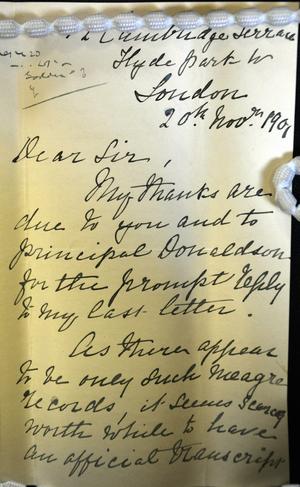 2 Cambridge Terrace
Hyde Park W
London
20th Novr. 190
Dear Sir,
My thanks are
due to you and to
Principal Donaldson
for the prompt reply
to my last letter.
As there appear
to be only such meagre
records, it seems scarcely
worth while to have
an official transcript